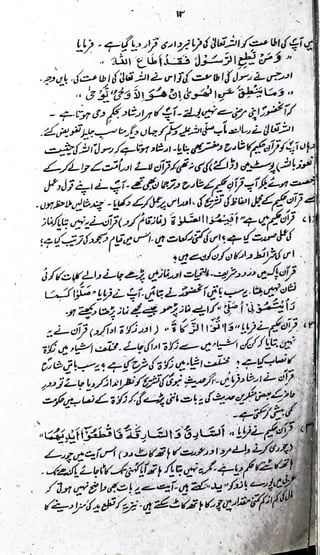 ۱۳
میں آپ کی اطاعت کو اللہ تعالیٰ کی فرمانبرداری قرار دیا گیا ہے۔ فرمایا
"وَمَنْ تُطِعِ الرَّسُوْلَ فَقَدْ اَطَاعَ اللهَ"
اور جس نے رسول کی اطاعت کی تو اس نے اللہ تعالیٰ کی اطاعت کی۔ بایں وجہ۔
"وَمَا يَنْطِقُ عَنِ الْهَوٰى اِنْ هُوَ اِلَّا وَحْىٌ يُّوْحٰى"
کہ آنحضور اپنی مرضی سے نہیں بولتے۔ آپ کا ہر ارشاد بحکم وحی ہوتا ہے۔
اللہ تعالیٰ نے رسالت مآب صلی اللہ علیہ وسلم کو جہاں دیگر مناصب جلیلہ تفویض کئے
آپ کو قرآن حکیم کا شارح و مفسر بھی بنایا۔ ارشاد ہوتا ہے کہ رسول اللہ کی حیثیت
نعوذ باللہ پوسٹ مین (ڈاکئے) کی سی نہ تھی کہ قرآن لائے اور امت کے حوالے کر کے
رخصت ہو گئے بلکہ آپ قرآن حکیم کے شارح و ترجمان بھی تھے۔ آپ نے اپنے قول و عمل
سے قرآن حکیم کے مجمل الفاظ کی تشریح کی، اور اس پر عمل کر کے دکھایا۔ چند مثالیں ملاحظہ ہوں۔
قرآن حکیم میں ہے "اَقِيْمُوا الصَّلٰوةَ" (نماز قائم کرو) قرآن نے یہ نہیں بتایا کہ نماز
کی عملی صورت کیا ہے؟ اس کی کتنی رکعات ہیں۔ اس میں قیام و سجود کی ترتیب کیا ہے؟
اس کی شرائط و ارکان کون کون سے ہیں؟
قرآن پاک میں درود شریف، التحیات اور نماز میں پڑھے جانے والے کلمات کا کوئی
نشان نہیں ملتا۔ یہ سب باتیں آنحضور نے بتائیں۔ آپ نے فرمایا "صَلُّوْا كَمَا
رَأَيْتُمُوْنِىْ اُصَلِّىْ" کہ ایسے نماز پڑھو جیسے مجھے نماز پڑھتا دیکھتے ہو۔
قرآن حکیم نے فرمایا "وَاٰتُوا الزَّكٰوةَ" (اور زکوٰۃ ادا کرو) قرآن نے یہ
نہیں بتایا کہ کن کن اشیاء میں سے زکوٰۃ ادا کی جائے۔ مختلف اشیاء میں زکوٰۃ
کا نصاب کیا ہے؟ مختلف اشیاء میں زکوٰۃ کی شرح کیا ہے؟ یہ سب باتیں شارح
قرآن نے ارشاد فرمائیں۔ اگر حدیث نبوی کی تشریح کو نظر انداز کر دیا جائے تو دور
حاضر کے بعض منکرین حدیث کی یہ بات ماننی پڑے گی کہ زکوٰۃ کے نصاب میں حکومت
کمی بیشی کر سکتی ہے۔
قرآن حکیم نے فرمایا "اَلسَّارِقُ وَالسَّارِقَةُ فَاقْطَعُوْا اَيْدِيَهُمَا"
(چوری کرنے والے مرد اور عورت کا ہاتھ کاٹ دو) اس آیت میں چور کے
ہاتھ کاٹنے کا حکم دیا ہے، مگر یہ نہیں بتایا کہ ہاتھ کو کہاں سے کاٹا جائے
عربی میں پورے بازو کو "ید" کہتے ہیں۔ آیت سے یہ بات بھی واضح نہیں ہوتی کہ
مال کی کم از کم کتنی مقدار میں چور کا ہاتھ کاٹ سکتے ہیں۔ نیز یہ کہ قطع ید کی سزا دینے کا